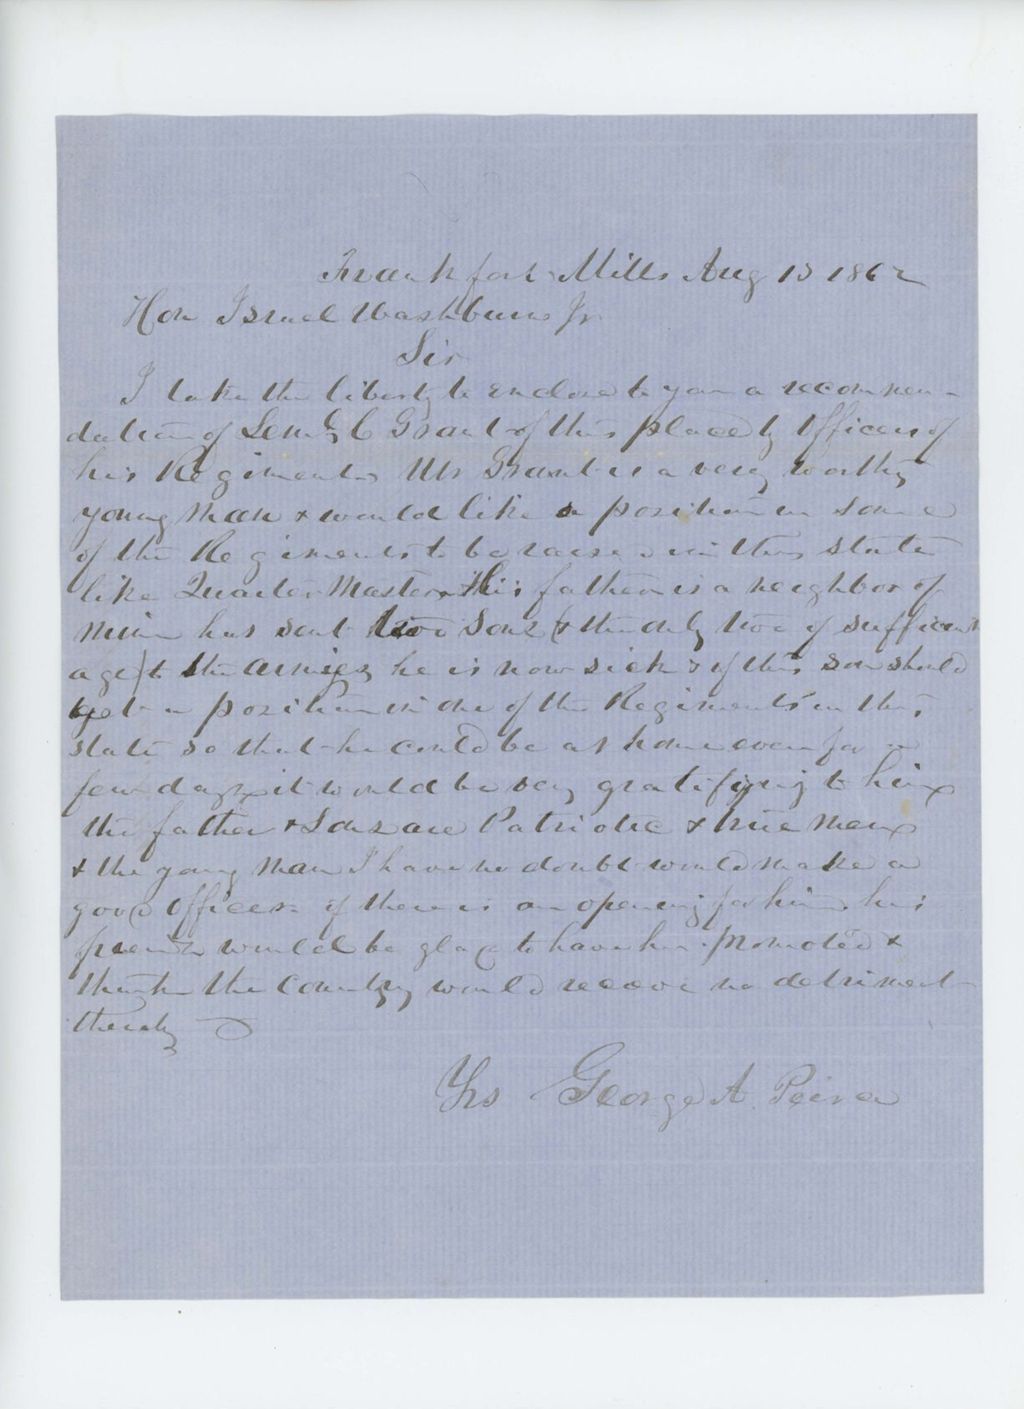 Frankfort Mills Aug 13 1862
Hon Israel Washburn Jr
Sir
I take the liberty to enclose to you a recommen-
dation of C Grant of this place by Officers of
his Regiment Mr Grant is a very worthy
young man & would like a position in some
of the Regiments to be raised in this state
like Quarter Master His father is a neighbor of
mine has sent two sons (& the only two of sufficient
age) to the armies he is now sick & if this son should
get a position in one of the Regiments in this
state so that he could be at home even for a
few days it would be very gratifying to him
the father & Sons are Patriotic & true men
& the young man I have no doubt would make a
good officer if there is an opening for him his
friends would be glad to have him promoted &
think the Country would receive no detriment
thereby
Yrs George A Peirce